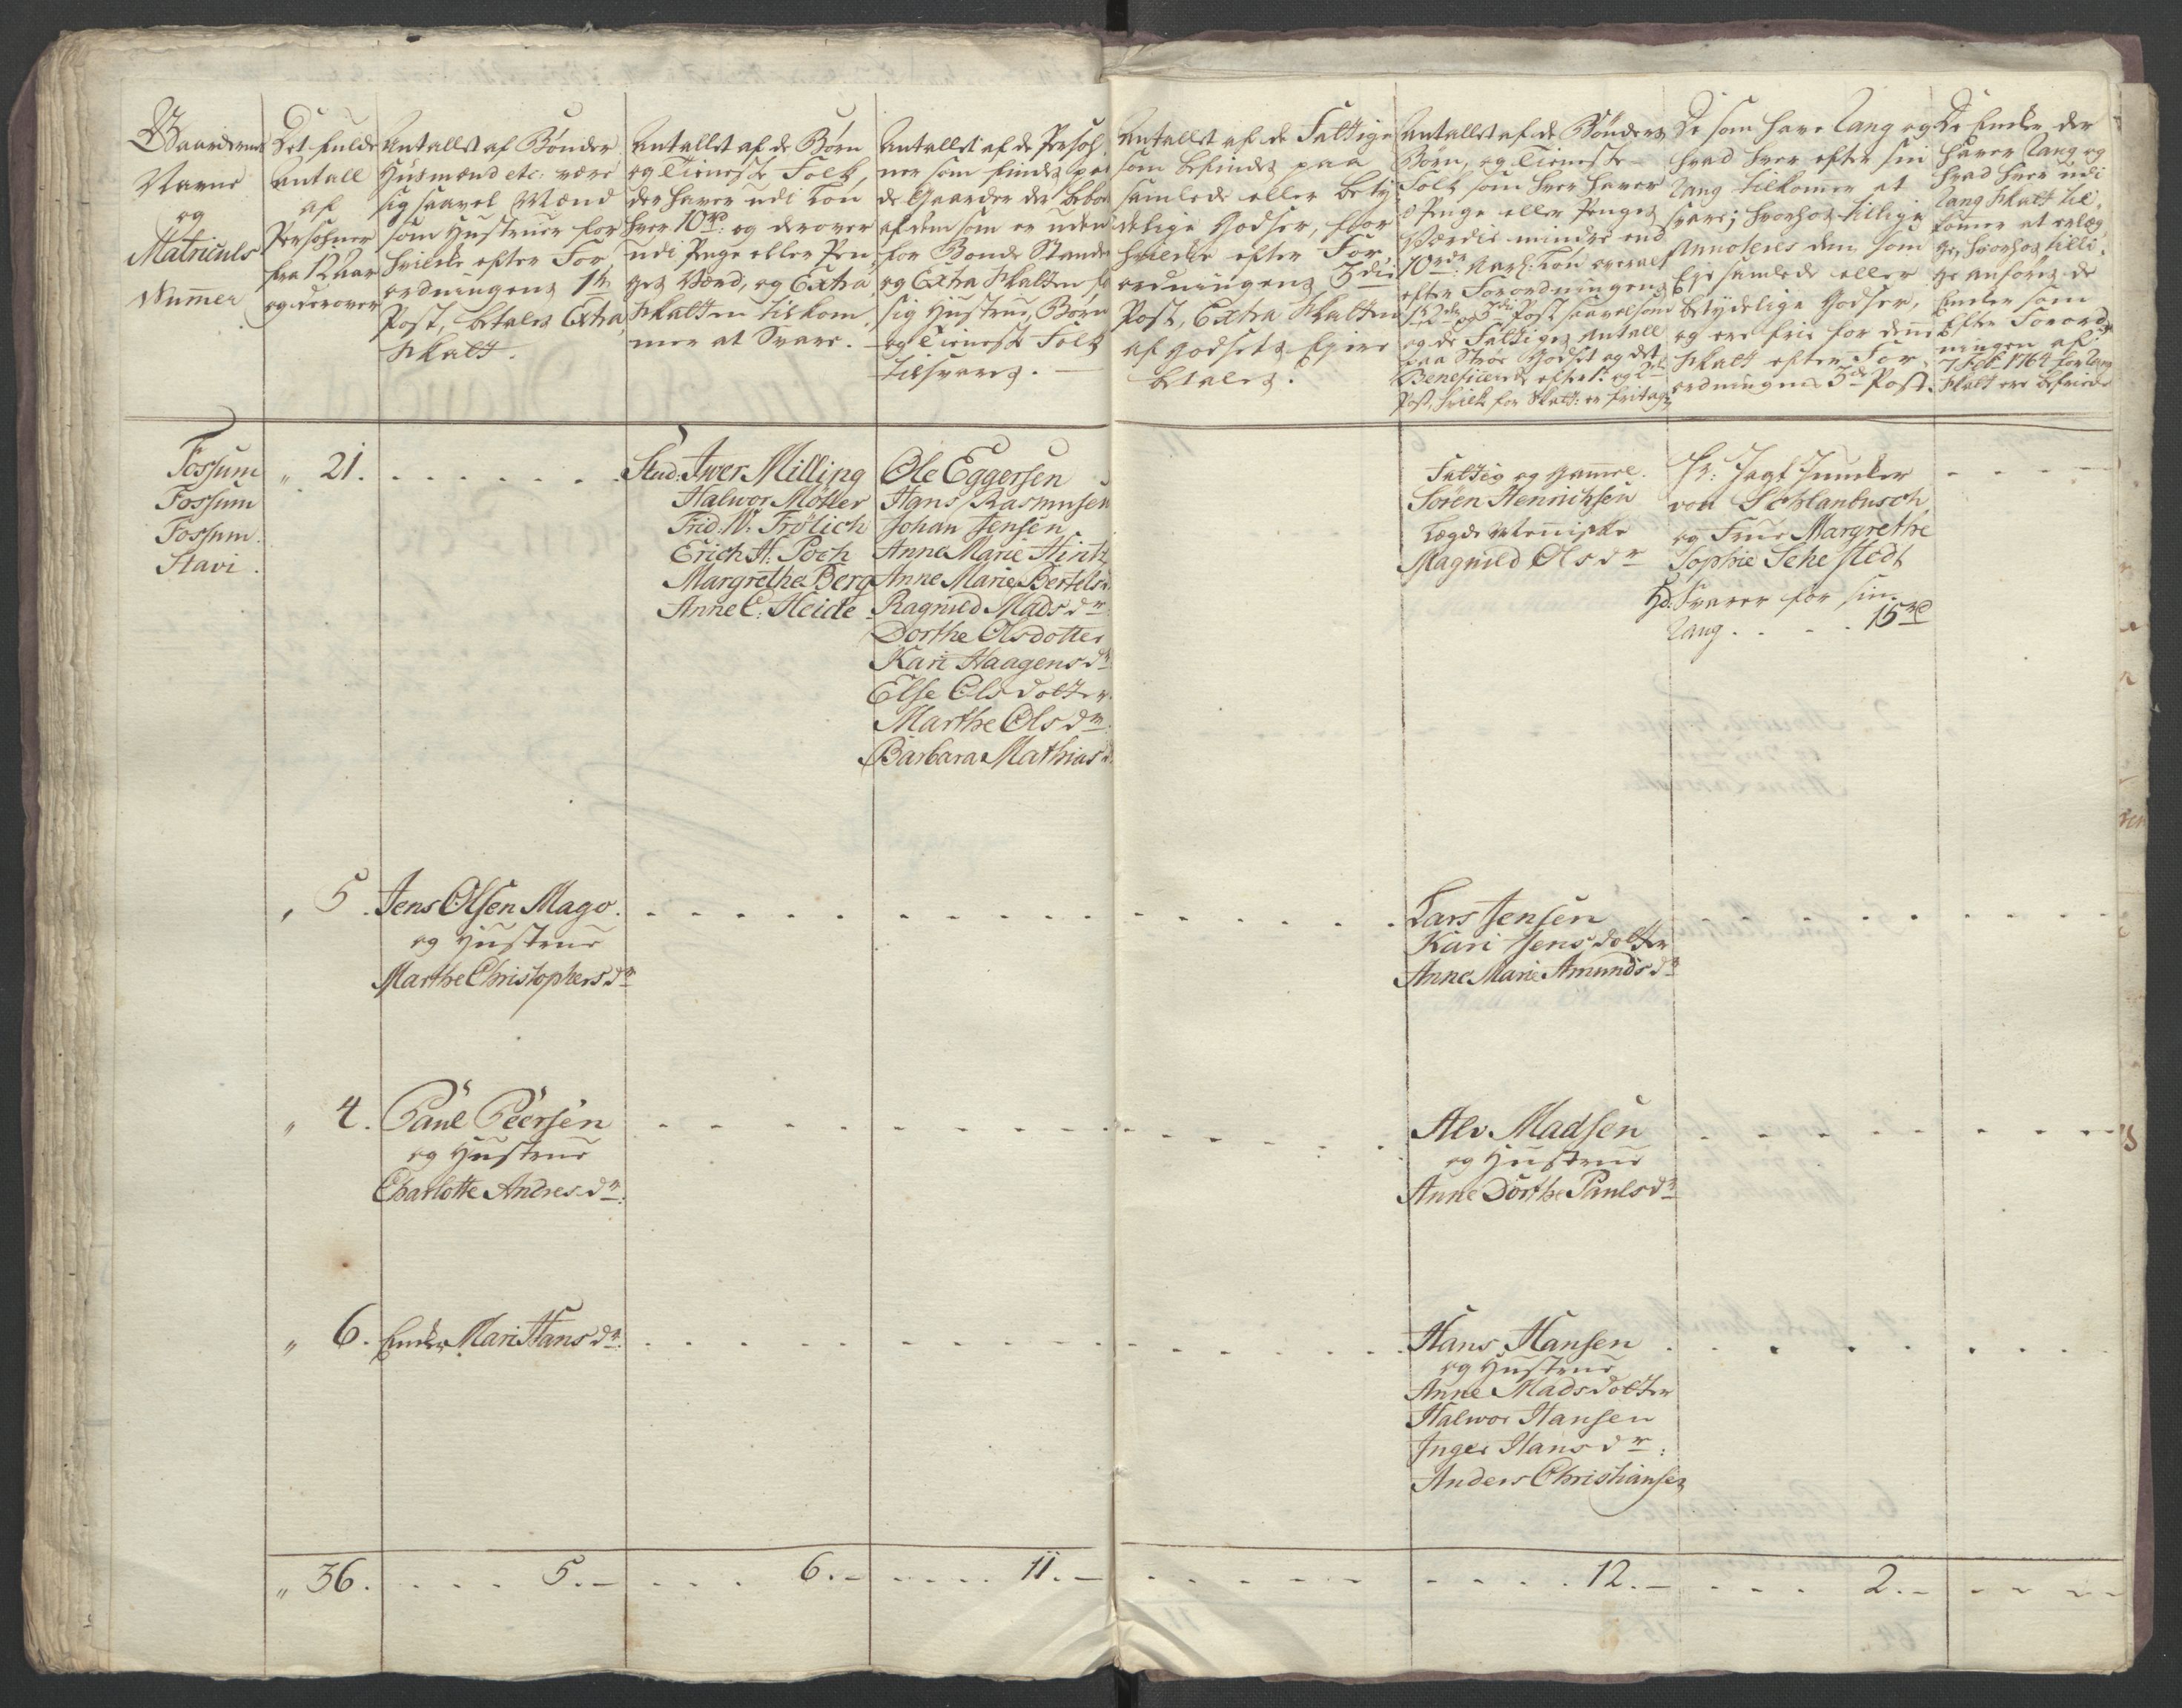 Gaardernes
Navne
og
Matriculs
Nummer
Det fulde
Antall
af
Persohner
fra 12 Aar
og derover
Antallet af Bønder
Husmænd etc: være
sig saavel Mænd
som Hustruer for
hvilke efter For
ordningens 1te
Post, betales Extra
Skatt.
Antallet af de Børn
og Tieneste Folk,
der haver udi Løn
hver 10rd: og derover
udi Penge eller Pen
ges Værd, og Extra
Skatten tilkom
mer at Svare.
Antallet af de Persoh
ner som findes paa
de Gaarder der beboes
af dem som er uden
for Bonde Stande
og Extra Skatten for
sig Hustrue, Børn
og Tieneste Folk
tilsvares.
Antallet af de Fattige
som befindes paa
samlede eller bety
delige Godser, for
hvilke efter For
ordningens 3die
Post, Extra Skatten
af Godsets Ejere
betales.
Antallet af de Bønders
Børn, og Tieneste
Folk som hver haver
i Penge eller Penges
Værdie mindre end
10rdr: Aarl: Løn overalt
efter Forordningens
1ste 2den og 5te Post saavelsom
og de Fattiges Antall
paa Strøe Godset og det
Beneficerede efter 1te og 2den
Post, hvilke for Skatt: er fritagne
De som have Rang og
hvad hver efter sin
Rang tilkommer at
svare; hvorhos tillige
Annoteres dem som
Eje samlede eller
betydelige Godser,
og ere frie for denne
Skatt efter For
ordningens 3die Post.
De Enker der
haver Rang og
hvad hver udi
Rang Skatt til
kommer at erlæg
ge, hvorhos tilli
ge anføres de
Enker som
efter Forord
ningen af
7 Feb: 1764 for Rang
Skatt ere befriede
Fossum
Fossum
Fossum.
Stavi.
" 21.
Stud: Iwer Milling
Halwor Møller
Frid: W: Frölich
Erich H: Poch
Margrethe Berg
Anne C: Heide
Ole Eggersen
Hans Rasmusen
Johan Jensen
Anne Marie Hintz
Anne Marie Bertelsdr
Ragnild Mads dr
Dorthe Olsdotter
Kari Haagens dr
Else Ols dotter
Marthe Ols dr
Barbara Mathias dr
Fattig og Gamel.
Sören Henrichsen
Lægds Menniske
Magnild Ols dr
Hr: Jagt Juncker
von Schlanbusch,
og Frue Margrethe
Sophie Sehestedt
Hd: Svarer for sin
Rang . . . . 15rd
" 5.
Jens Olsen Mago.
og Hustrue
Marthe Christophers dr
Lars Jensen
Kari Jens dotter
Anne Marie Amunds dr
" 4.
Paul Peersen
og Hustrue
Charlotte Andres dr:
Alv Madsen
og Hustrue
Anne Dorthe Pauls dr
" 6.
Enke Mari Hans dr:
Hans Hansen
og Hustrue
Anne Mads dotter
Halwor Hansen
Inger Hans dr:
Anders Christiansen
" 36. . . . 5.- . . . 6.- . . . 11.- . . . 12.- . . . 2.-